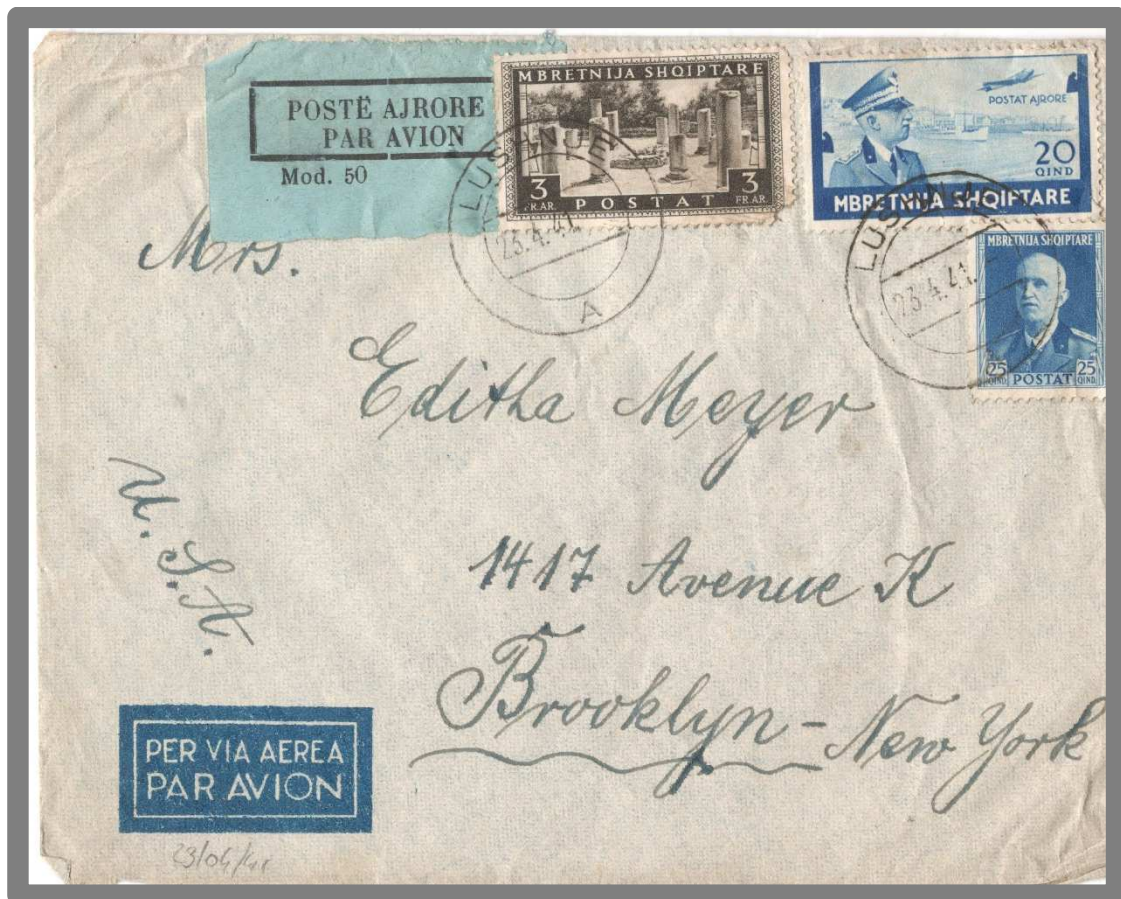 POSTË AJRORE
PAR AVION
Mod. 50
MBRETNIJA SHQIPTARE
3 FR.AR. POSTAT 3 FR.AR.
LUSHNJE
23.4.41
A
POSTAT AJRORE
20
QIND
MBRETNIJA SHQIPTARE
LUSHNJE
23.4.41.
MBRETNIJA SHQIPTARE
25 QIND POSTAT 25 QIND
Mrs.
Editha Meyer
U.S.A.
1417 Avenue K
Brooklyn - New York
PER VIA AEREA
PAR AVION
23/04/41